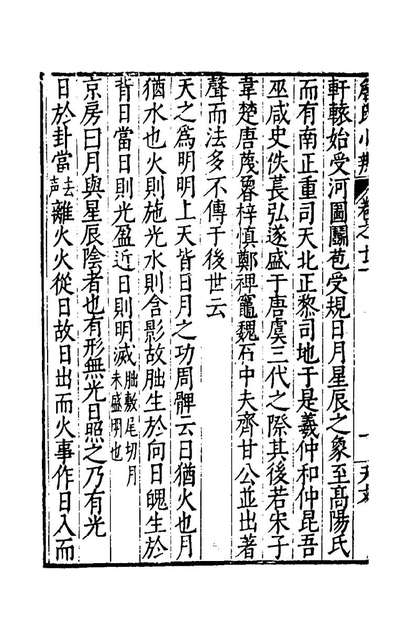 詹氏小辨 卷之廿 一 天文
軒轅始受河圖鬭苞受規日月星辰之象至髙陽氏
而有南正重司天北正黎司地于是羲仲和仲昆吾
巫咸史佚萇弘遂盛于唐虞三代之際其後若宋子
韋楚唐蔑魯梓慎鄭裨竈魏石中夫齊甘公並出著
聲而法多不傳于後世云
天之為明明上天皆日月之功周髀云日猶火也月
猶水也火則施光水則含影故朏生於向日魄生於
背日當日則光盈近日則明滅朏敷尾切月未盛明也
京房曰月與星辰陰者也有形無光日照之乃有光
日於卦當去聲離火火從日故日出而火事作日入而